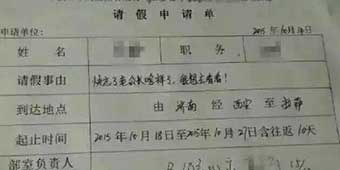 请假申请单
申请单位： 2015年10月14日
姓名 职务
请假事由 快忘了老公长啥样了，很想去看看！
到达地点 由 济南 经 西安 至 拉萨
起止时间 2015年10月18日至2015年10月27日含往返10天
部室负责人